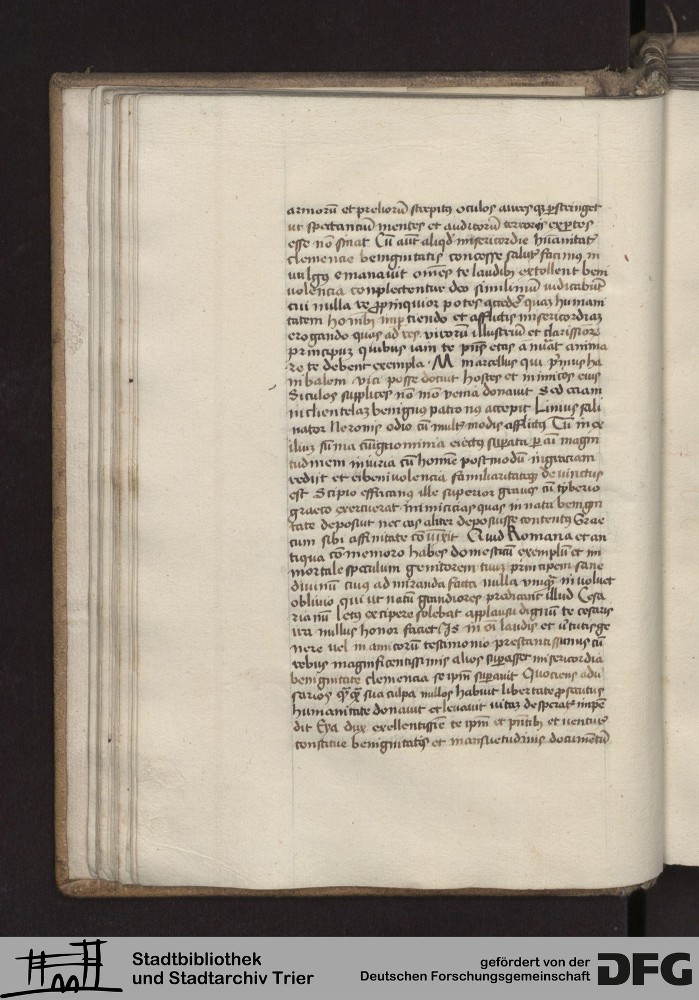 armorū et preliorū strepitꝰ oculos aures qꝫ ꝑstringet
ut spectanciū mentes et auditorū terroris exꝑtes
esse nō sinat Cū aūt aliqd misericordie hūanitatꝭ
clemencie benignitatis concesse salutꝭ facinꝰ in
vulgꝰ emanavit om̄es te laudibꝫ extollent beni
volencia conplectentur deo similimū iudicabūt
cui nulla re ꝓpinquior potes accede quaꝫ humani
tatem hoībꝫ imꝑciendo et afflictis misericordiaꝫ
erogando quas ad res virorū illustriū et clarissiorꝫ
principuꝫ quibus iam te pn̄s etas annuat anima
re te debent exempla M marcellus qui pͥmus ha
nibalem vici posse docuit hostes et inimicos eius
Siculos supplices nō mō venia donavit Sed eciam
in clientelaꝫ benignꝰ patronꝰ accepit Linius sali
nator Neronis odio cū multꝭ modis afflictꝰ Tū in ex
iliuꝫ sūma cū ignominia eiectꝰ suꝑata ꝑ aī magni
tudinem iniuria cū homīe postmodū in graciam
rediit et ei benivolencia familiaritateqꝫ devinctus
est Scipio affricanꝰ ille superior gravꝭ cū tyberio
graeco exercuerat inimicicias quas innata benigni
tate deposuit nec eas aliter deposuisse contentꝰ Grac
cum sibi affinitate cōiūxit Quid Romana et an
tiqua cōmemoro habes domesticū exemplū et im
mortale speculum genitorem tuuꝫ principem sane
divinū cuiꝰ ad miranda facta nulla umqꝫ involvet
oblivio qui ut natū grandiores predicant illud Cesa
rianū Letꝰ excipere solebat applausu dignū te cesaris
ira nullus honor faciet Is in oī laudis et v̄tutis ge
nere vel inimicorū testimonio prestantissimus cū
rebus magnificentissimis alios suꝑasset misericordia
benignitate clemencia se ipm̄ suꝑavit Quociens adv̄
sarios qͣqͣ sua culpa nullos habuit libertate ꝓsecutus
humanitate donavit et levavit vitaꝫ desperatꝭ impē
dit Eya dux exellentissīe te ipm̄ et pn̄tibꝫ et ventuꝭ
constitue benignitatꝭ et mansuetudinis documētū
Stadtbibliothek
und Stadtarchiv Trier
gefördert von der
Deutschen Forschungsgemeinschaft
DFG